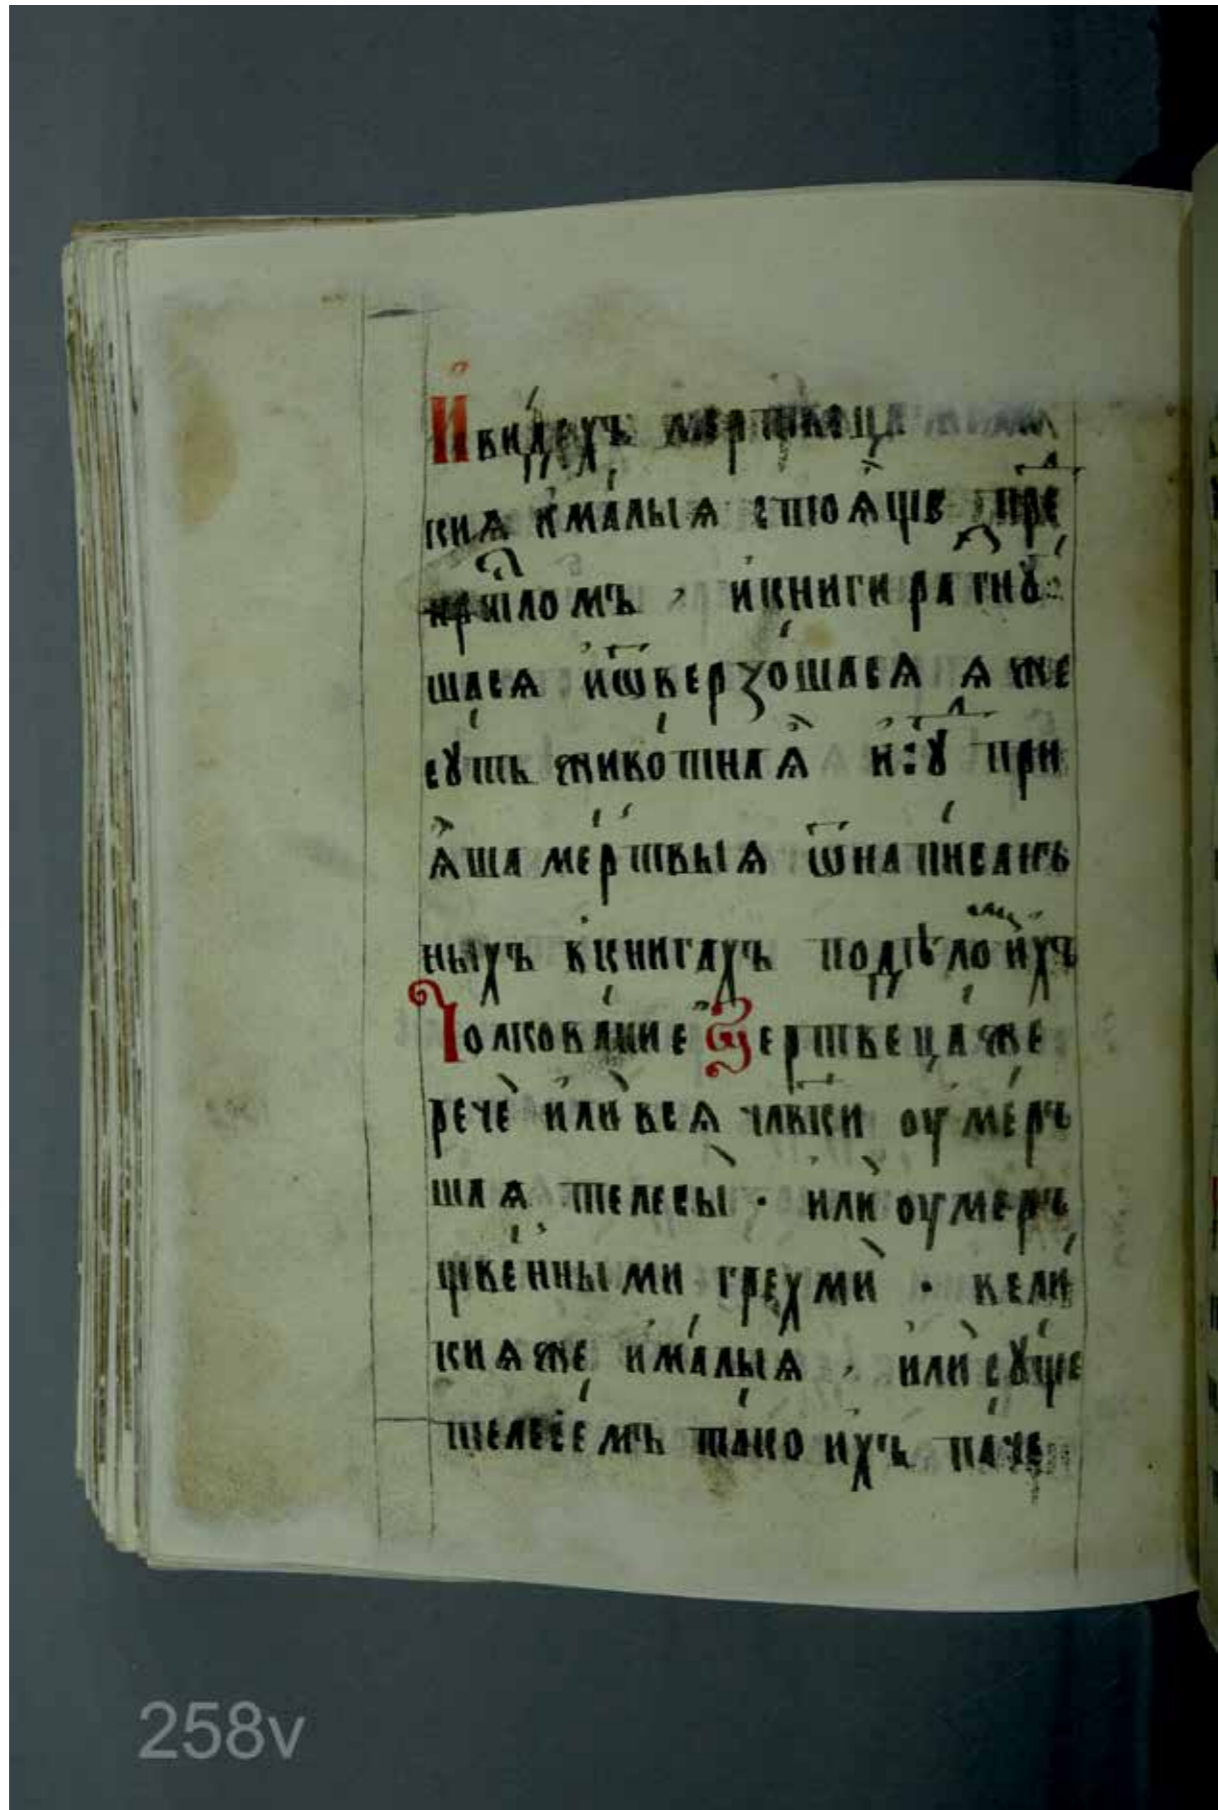 И видехъ мертвеца
кия и малыя стоящѣ пре
прⷭ҇толомъ, и книги разгну
шася и ѿверзошася яже
сꙋть животная и сꙋ при
яша мертвыя ѿ написанъ
ныхъ в книгахъ по дѣломъ ихъ
Толкование Мертвеца же
рече или вся члвки оумеръ
шая телесы · или оумеръ
щвенными грехми · вели
кия же и малыя, или сꙋще
телесемъ тако ихъ паче
258v